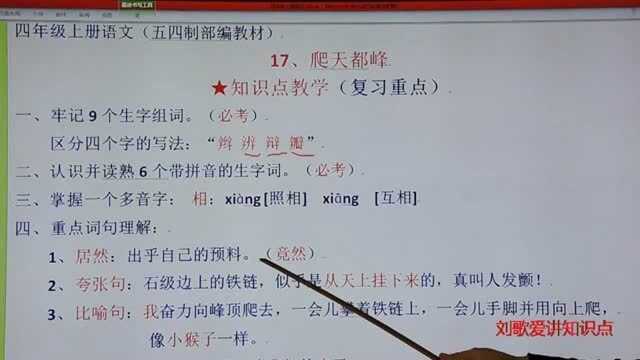 四年级上册语文（五四制部编教材）
17、爬天都峰
★知识点教学（复习重点）
一、牢记9个生字组词。（必考）
区分四个字的写法：“辫 辨 辩 瓣”
二、认识并读熟6个带拼音的生字词。（必考）
三、掌握一个多音字：相：xiàng[照相] xiāng [互相]
四、重点词句理解：
1、居然：出乎自己的预料。（竟然）
2、夸张句：石级边上的铁链，似乎是从天上挂下来的，真叫人发颤！
3、比喻句：我奋力向峰顶爬去，一会儿攀着铁链上，一会儿手脚并用向上爬，
像小猴子一样。
刘歌爱讲知识点